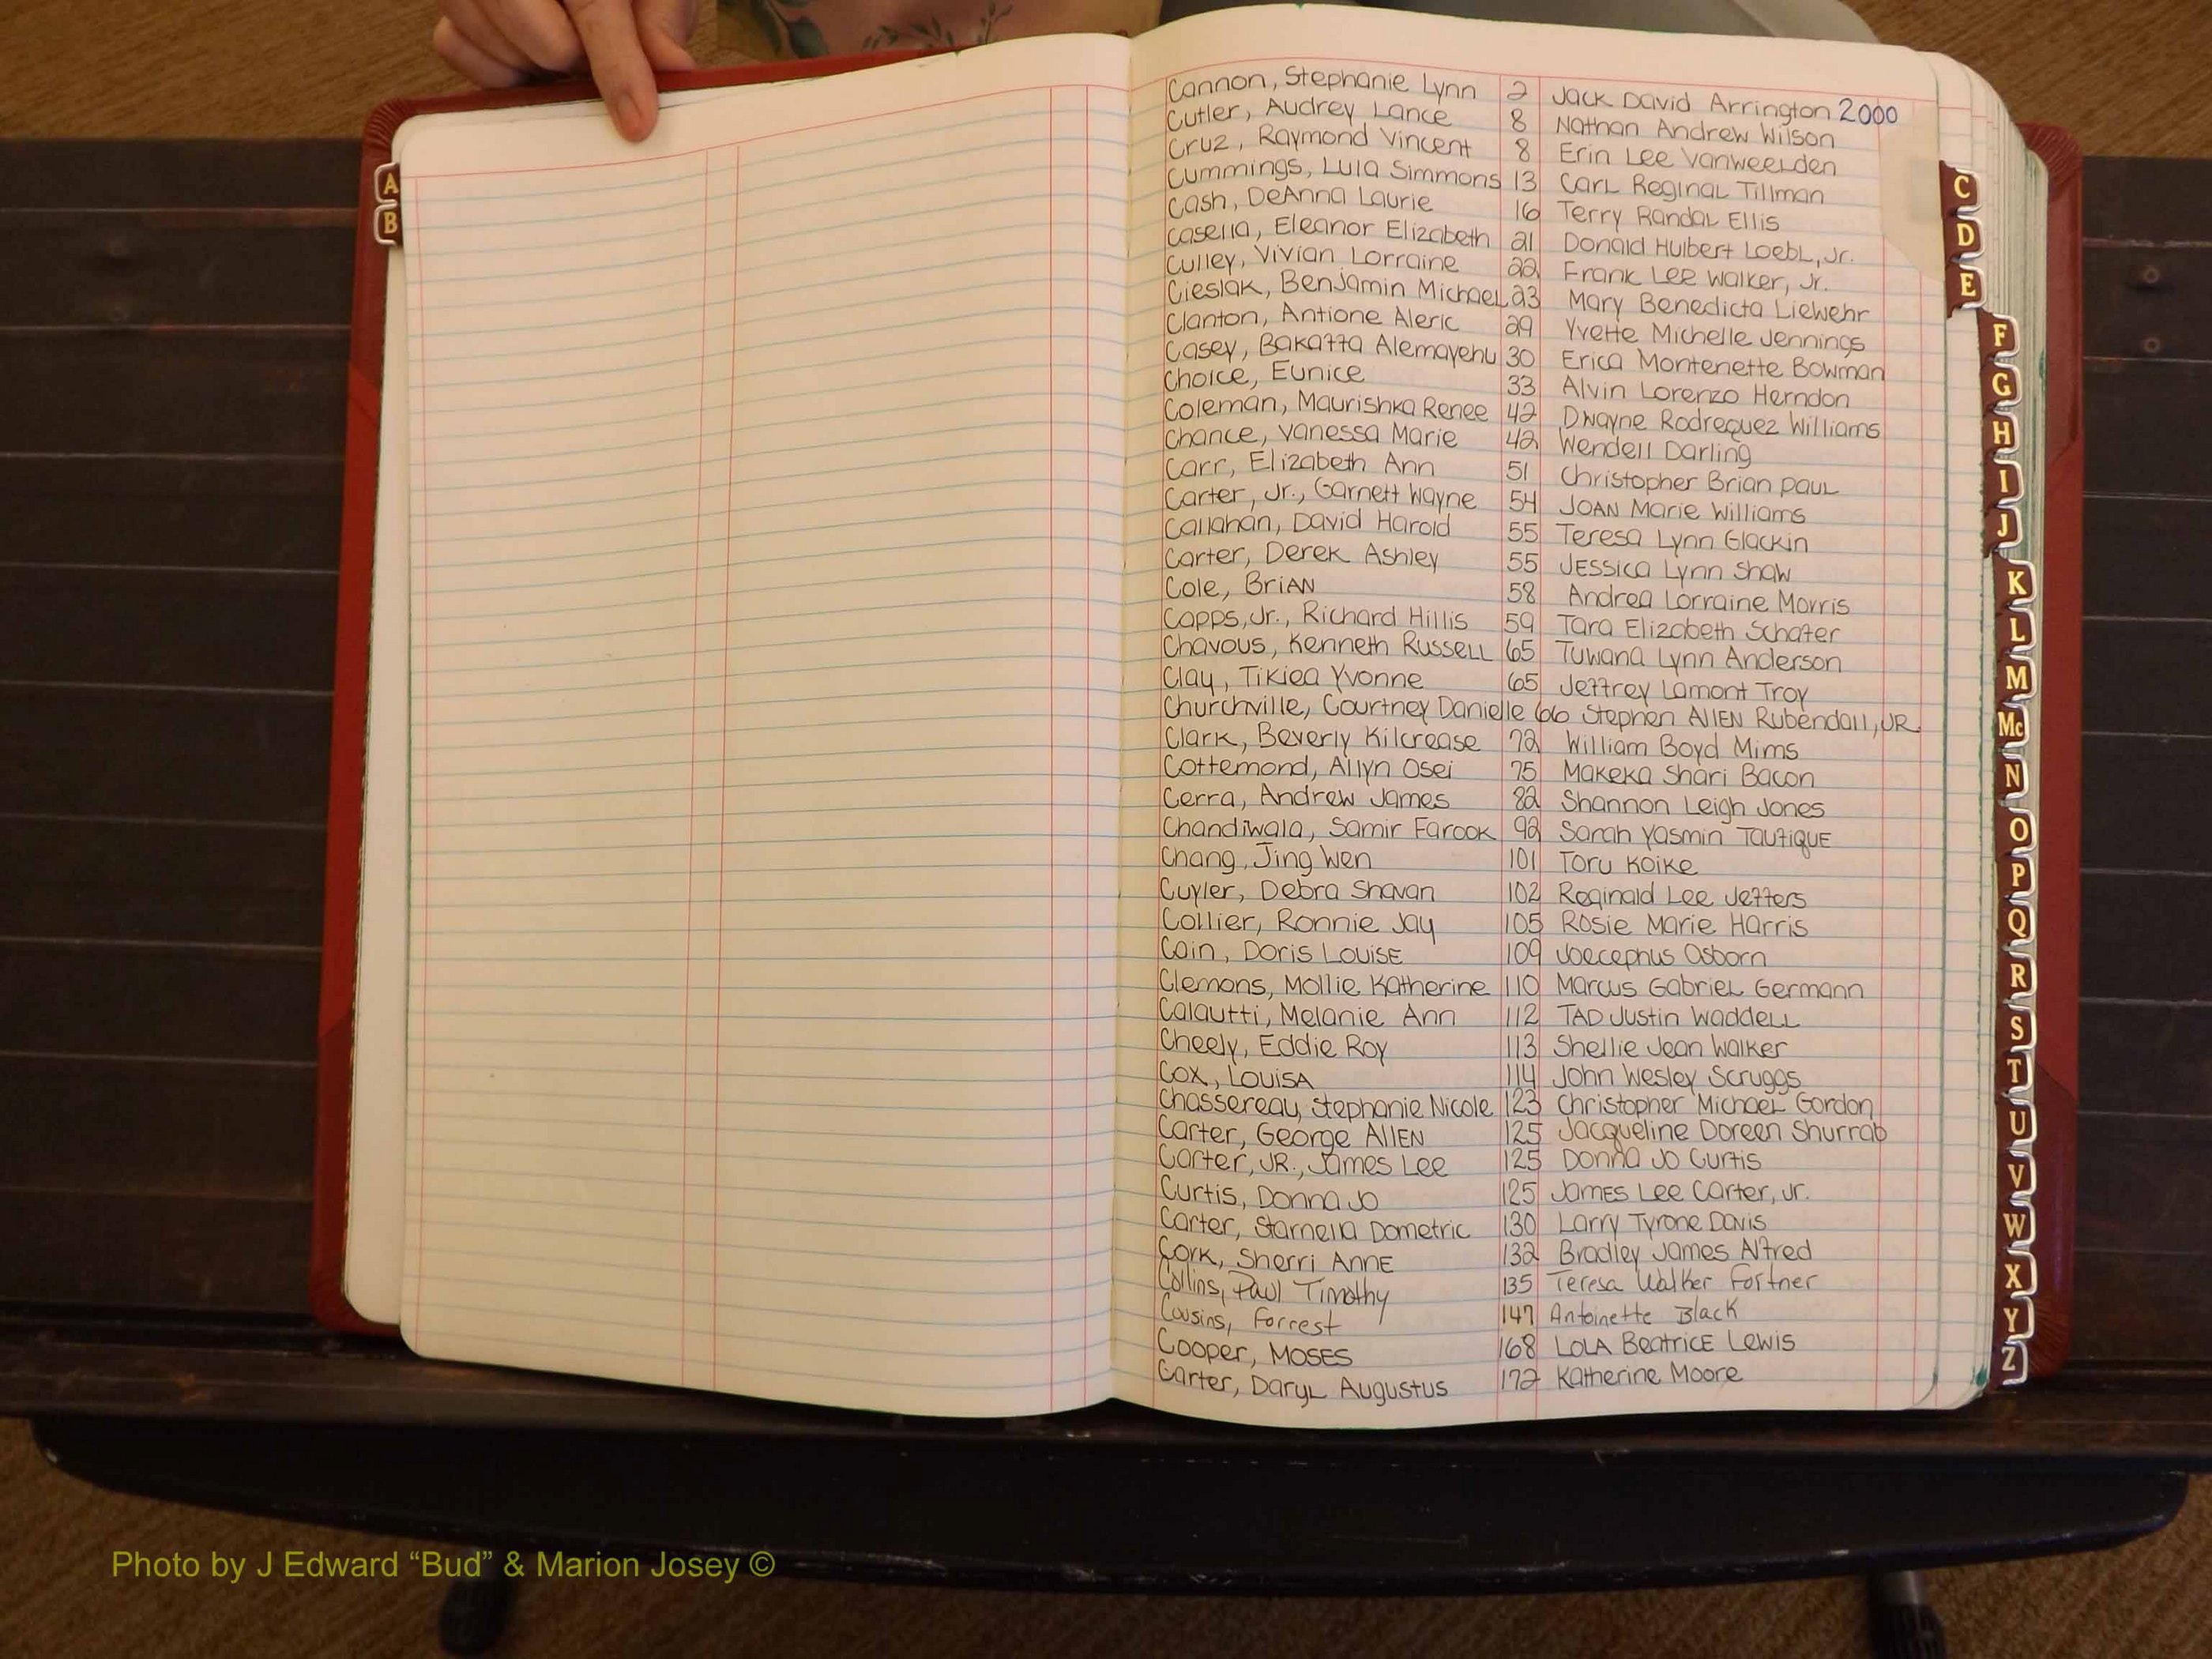 Cannon, Stephanie Lynn 2 Jack David Arrington 2000
Cutler, Audrey Lance 8 Nathan Andrew Wilson
Cruz, Raymond Vincent 8 Erin Lee Vanweelden
Cummings, Lula Simmons 13 Carl Reginal Tillman
Cash, DeAnna Laurie 16 Terry Randal Ellis
Casella, Eleanor Elizabeth 21 Donald Hulbert Loebl, Jr.
Culley, Vivian Lorraine 22 Frank Lee Walker, Jr.
Cieslak, Benjamin Michael 23 Mary Benedicta Liewehr
Clanton, Antione Aleric 29 Yvette Michelle Jennings
Casey, Bakaffa Alemayehu 30 Erica Montenette Bowman
Choice, Eunice 33 Alvin Lorenzo Herndon
Coleman, Maurishka Renee 42 Dwayne Rodrequez Williams
Chance, Vanessa Marie 42 Wendell Darling
Carr, Elizabeth Ann 51 Christopher Brian Paul
Carter, Jr., Garnett Wayne 54 Joan Marie Williams
Callahan, David Harold 55 Teresa Lynn Glackin
Carter, Derek Ashley 55 Jessica Lynn Shaw
Cole, Brian 58 Andrea Lorraine Morris
Capps, Jr., Richard Hillis 59 Tara Elizabeth Schafer
Chavous, Kenneth Russell 65 Tuwana Lynn Anderson
Clay, Tikiea Yvonne 65 Jeffrey Lamont Troy
Churchville, Courtney Danielle 66 Stephen Allen Rubendall, JR.
Clark, Beverly Kilcrease 72 William Boyd Mims
Cottemond, Allyn Osei 75 Makeka Shari Bacon
Cerra, Andrew James 82 Shannon Leigh Jones
Chandiwala, Samir Farook 92 Sarah Yasmin Taufique
Chang, Jing Wen 101 Toru Koike
Cuyler, Debra Shavan 102 Reginald Lee Jeffers
Collier, Ronnie Jay 105 Rosie Marie Harris
Cain, Doris Louise 109 Joecephus Osborn
Clemons, Mollie Katherine 110 Marcus Gabriel Germann
Calautti, Melanie Ann 112 Tad Justin Waddell
Cheely, Eddie Roy 113 Shellie Jean Walker
Cox, Louisa 114 John Wesley Scruggs
Chassereau, Stephanie Nicole 123 Christopher Michael Gordon
Carter, George Allen 125 Jacqueline Doreen Shurrab
Carter, JR., James Lee 125 Donna Jo Curtis
Curtis, Donna Jo 125 James Lee Carter, Jr.
Carter, Starnella Dometric 130 Larry Tyrone Davis
Cork, Sherri Anne 132 Bradley James Alfred
Collins, Paul Timothy 135 Teresa Walker Fortner
Cousins, Forrest 147 Antoinette Black
Cooper, Moses 168 Lola Beatrice Lewis
Carter, Daryl Augustus 172 Katherine Moore
A
B
C
D
E
F
G
H
I
J
K
L
M
Mc
N
O
P
Q
R
S
T
U
V
W
X
Y
Z
Photo by J Edward “Bud” & Marion Josey ©